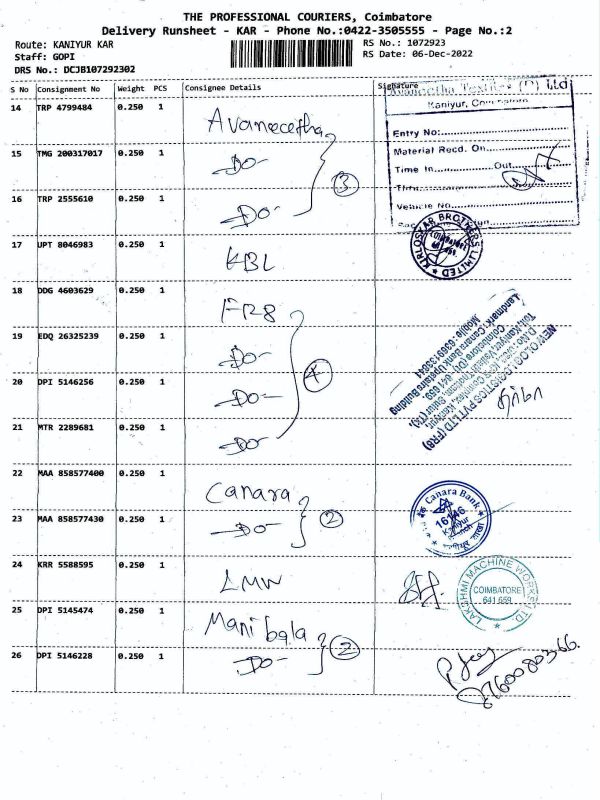 THE PROFESSIONAL COURIERS, Coimbatore
Delivery Runsheet - KAR - Phone No.:0422-3505555 - Page No.:2
Route: KANIYUR KAR
Staff: GOPI
DRS No.: DCJB107292302
RS No.: 1072923
RS Date: 06-Dec-2022
S No Consignment No Weight PCS Consignee Details Signature
14 TRP 4799484 0.250 1
15 TMG 200317017 0.250 1 -DO-
16 TRP 2555610 0.250 1 -DO-
3
Kaniyur, Coimbatore
Entry No:
Material Recd. On
Time In Out
Vehicle No
17 UPT 8046983 0.250 1 KBL
KIRLOSKAR BROTHERS LIMITED
18 DDG 4603629 0.250 1 FR8
19 EDQ 26325239 0.250 1 -DO-
20 DPI 5146256 0.250 1 -DO-
21 MTR 2289681 0.250 1 -DO-
4
Landmark: Canara Bank Upstairs Building
22 MAA 858577400 0.250 1 Canara
23 MAA 858577430 0.250 1 -DO-
2
Canara Bank
16146
Kaniyur
Branch
24 KRR 5588595 0.250 1 LMW
LAKSHMI MACHINE WORKS LTD
COIMBATORE
641 659
25 DPI 5145474 0.250 1 Manibala
26 DPI 5146228 0.250 1 -DO-
2